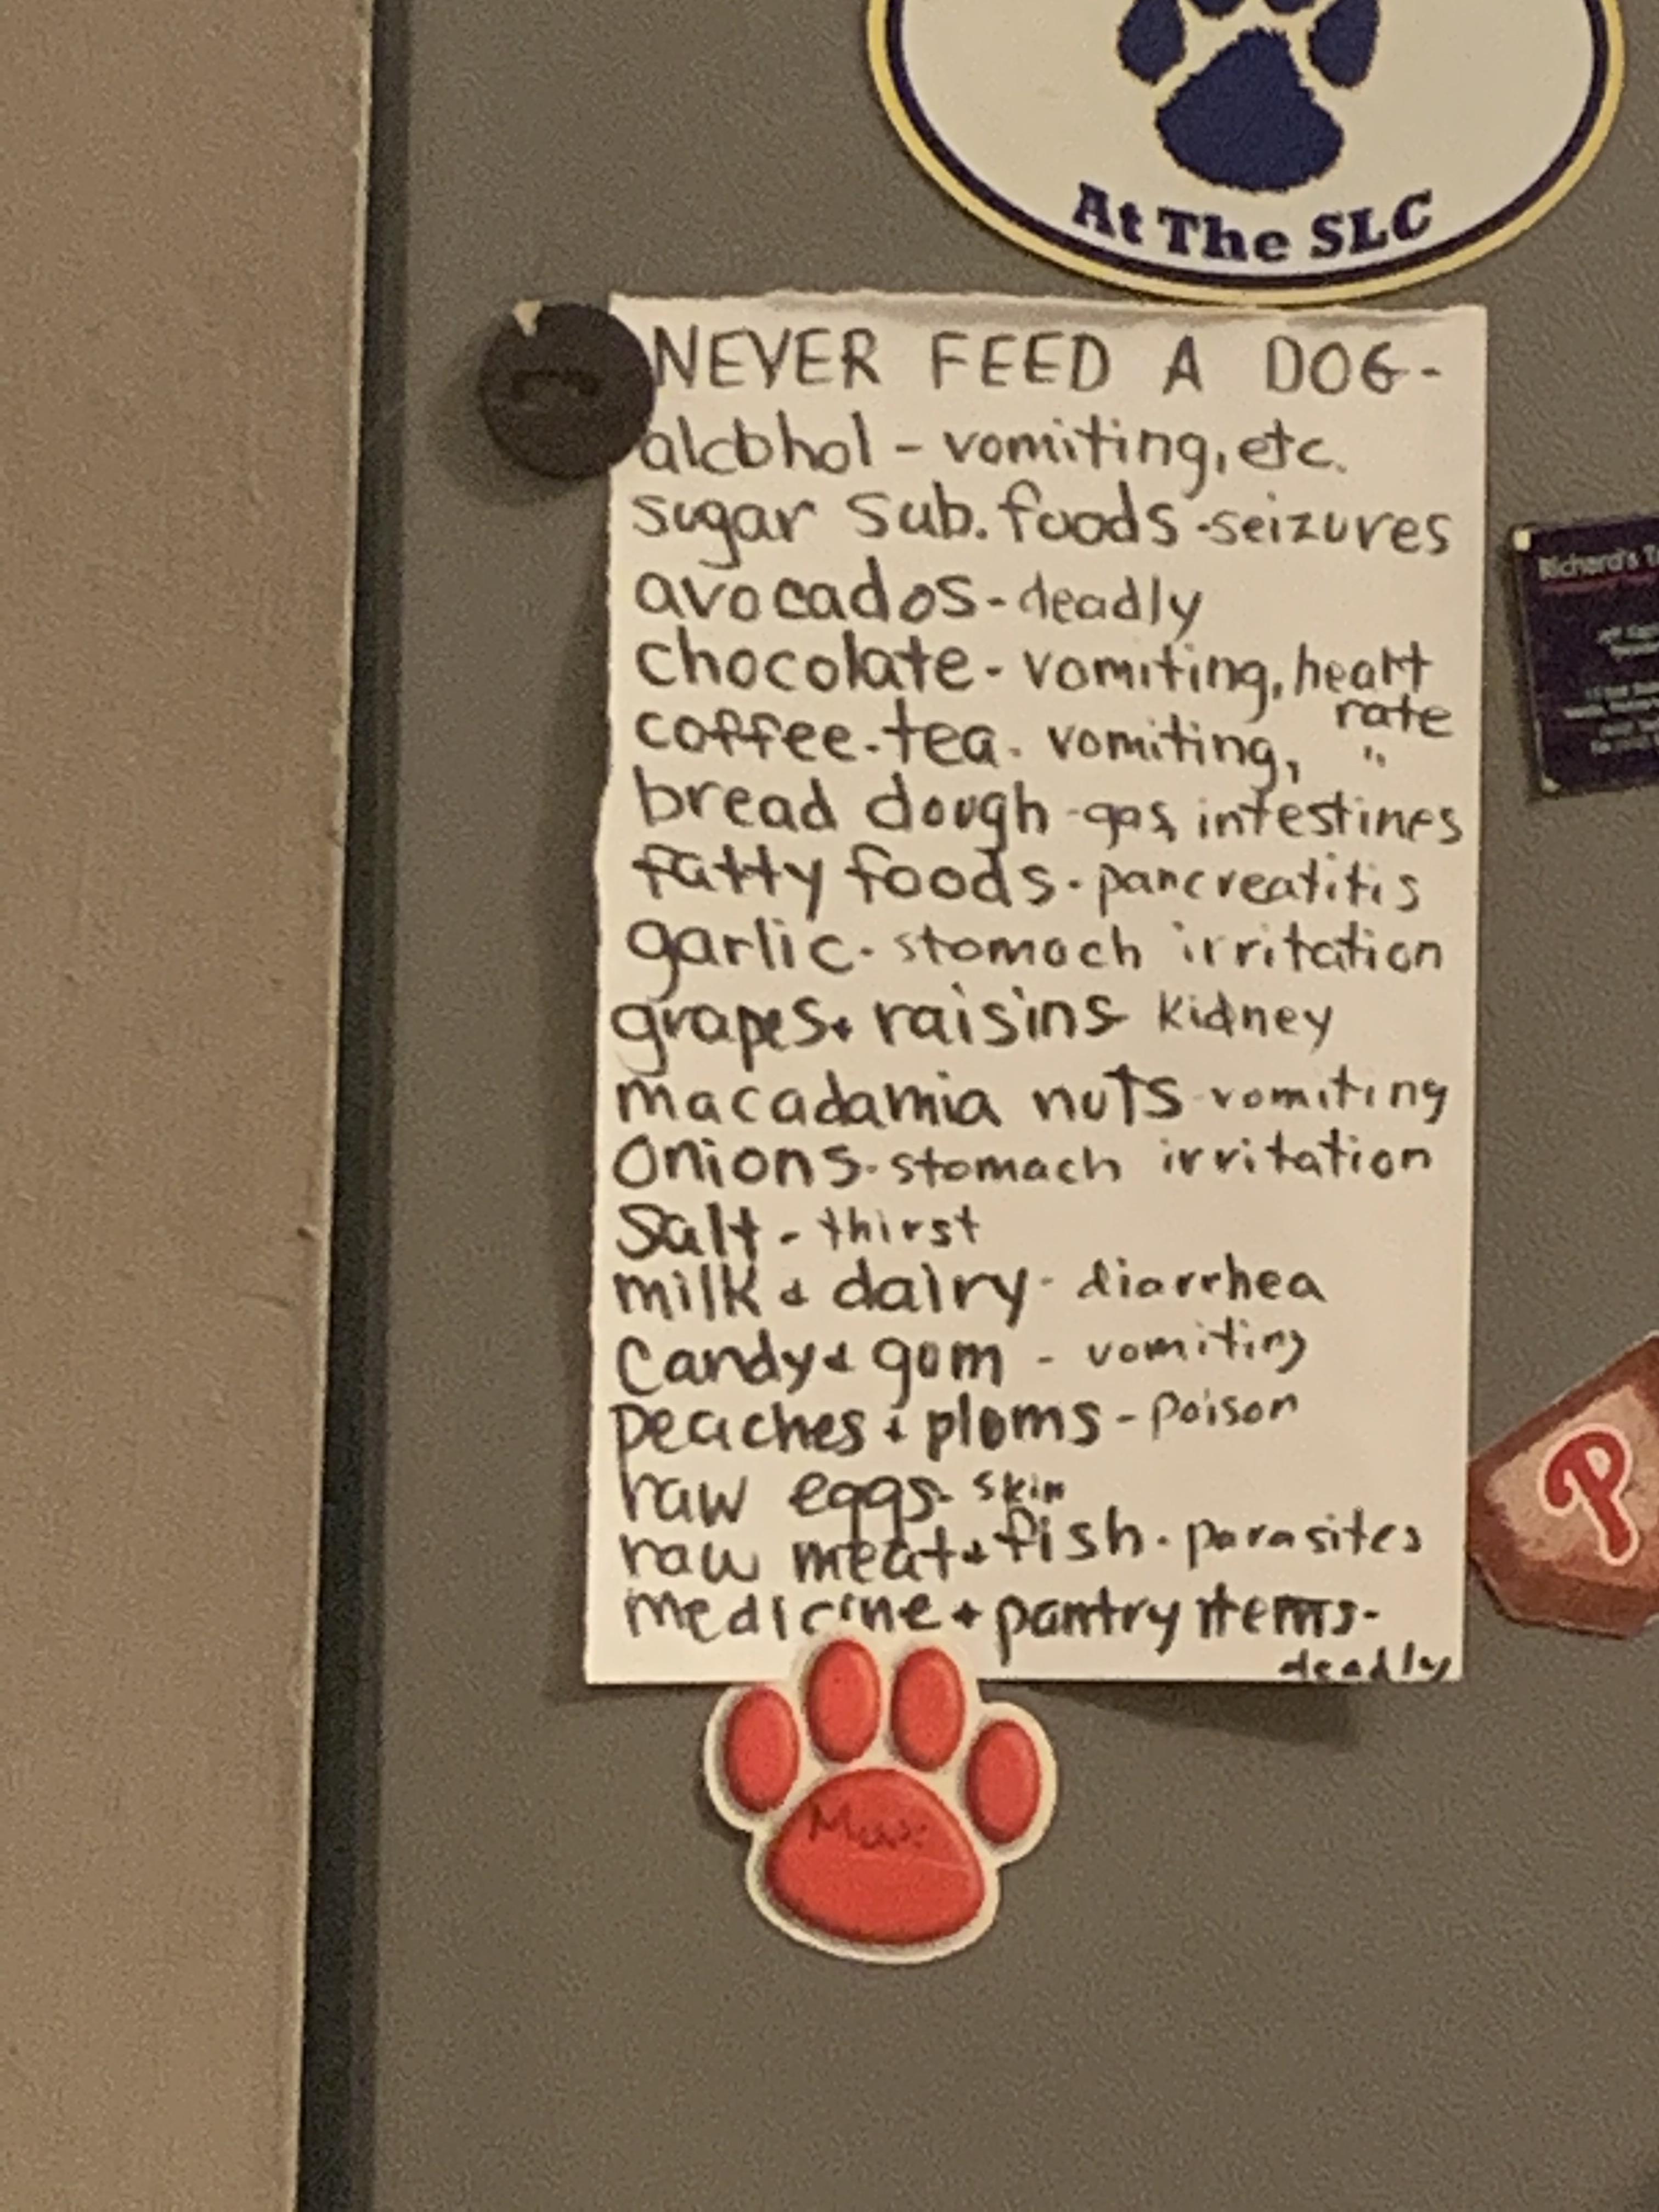 At The SLC
NEVER FEED A DOG-
alcohol - vomiting, etc.
sugar sub. foods - seizures
avocados - deadly
chocolate - vomiting, heart
rate
coffee - tea - vomiting, "
bread dough - gas, intestines
fatty foods - pancreatitis
garlic - stomach irritation
grapes + raisins - kidney
macadamia nuts - vomiting
onions - stomach irritation
Salt - thirst
milk + dairy - diarrhea
Candy + gum - vomiting
peaches + plums - poison
raw eggs - skin
raw meat + fish - parasites
medicine + pantry items -
deadly
Richard's
P